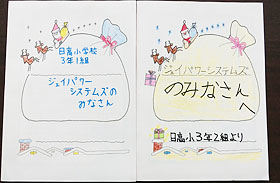 日高小学校
3年1組
ジェイパワー
システムズの
みなさん
ジェイパワーシステムズ
のみなさん
へ
日高小3年2組より